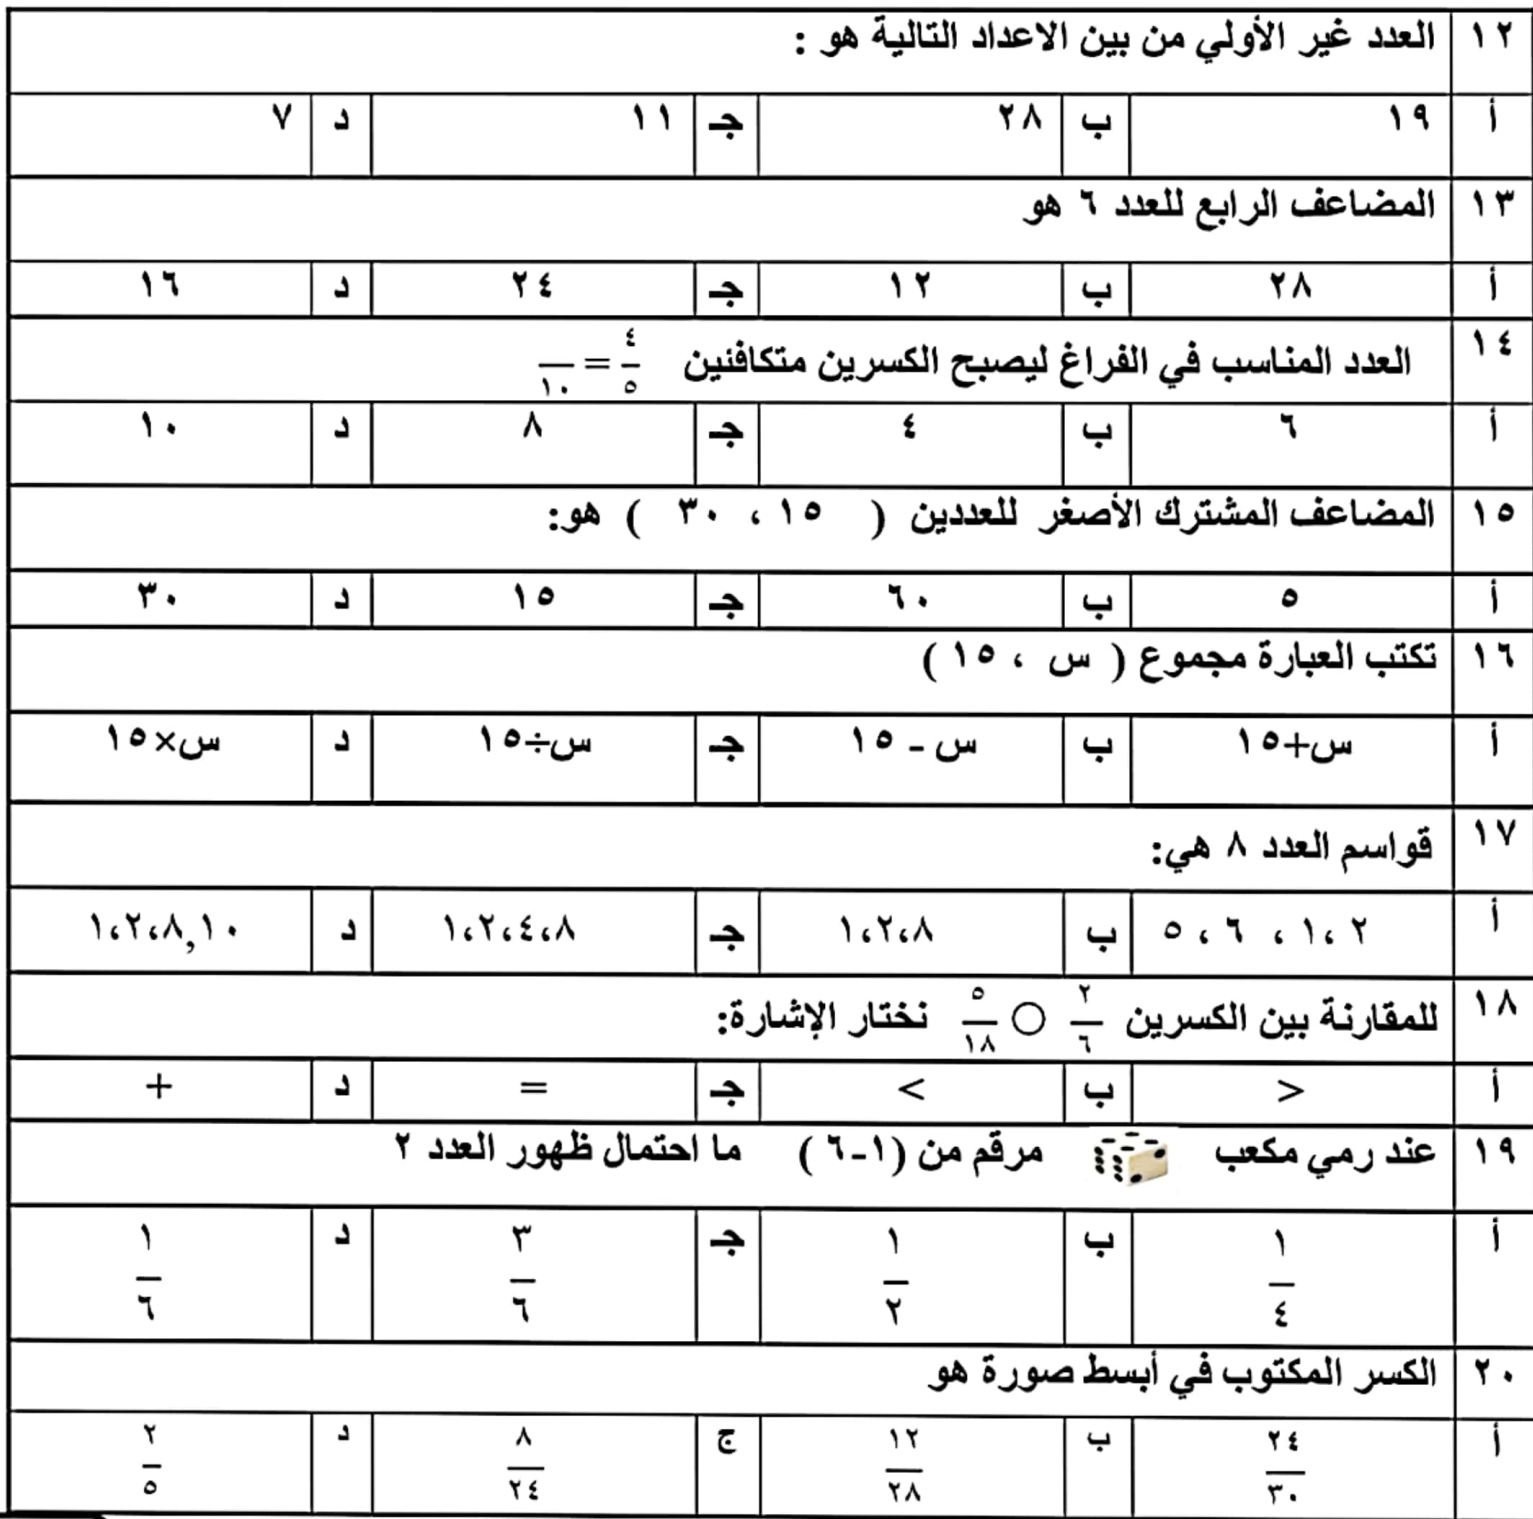 ١٢ العدد غير الأولي من بين الاعداد التالية هو :
أ ١٩ ب ٢٨ جـ ١١ د ٧
١٣ المضاعف الرابع للعدد ٦ هو
أ ٢٨ ب ١٢ جـ ٢٤ د ١٦
١٤ العدد المناسب في الفراغ ليصبح الكسرين متكافئين ٤/٥ = /١٠
أ ٦ ب ٤ جـ ٨ د ١٠
١٥ المضاعف المشترك الأصغر للعددين ( ١٥ ، ٣٠ ) هو:
أ ٥ ب ٦٠ جـ ١٥ د ٣٠
١٦ تكتب العبارة مجموع ( س ، ١٥ )
أ س+١٥ ب س - ١٥ جـ س÷١٥ د س×١٥
١٧ قواسم العدد ٨ هي:
أ ١، ٢ ، ٦ ، ٥ ب ١،٢،٨ جـ ١،٢،٤،٨ د ١،٢،٨,١٠
١٨ للمقارنة بين الكسرين ٢/٦ ○ ٥/١٨ نختار الإشارة:
أ > ب < جـ = د +
١٩ عند رمي مكعب مرقم من (١-٦ ) ما احتمال ظهور العدد ٢
أ ١/٤ ب ١/٢ جـ ٣/٦ د ١/٦
٢٠ الكسر المكتوب في أبسط صورة هو
أ ٢٤/٣٠ ب ١٢/٢٨ ج ٨/٢٤ د ٢/٥